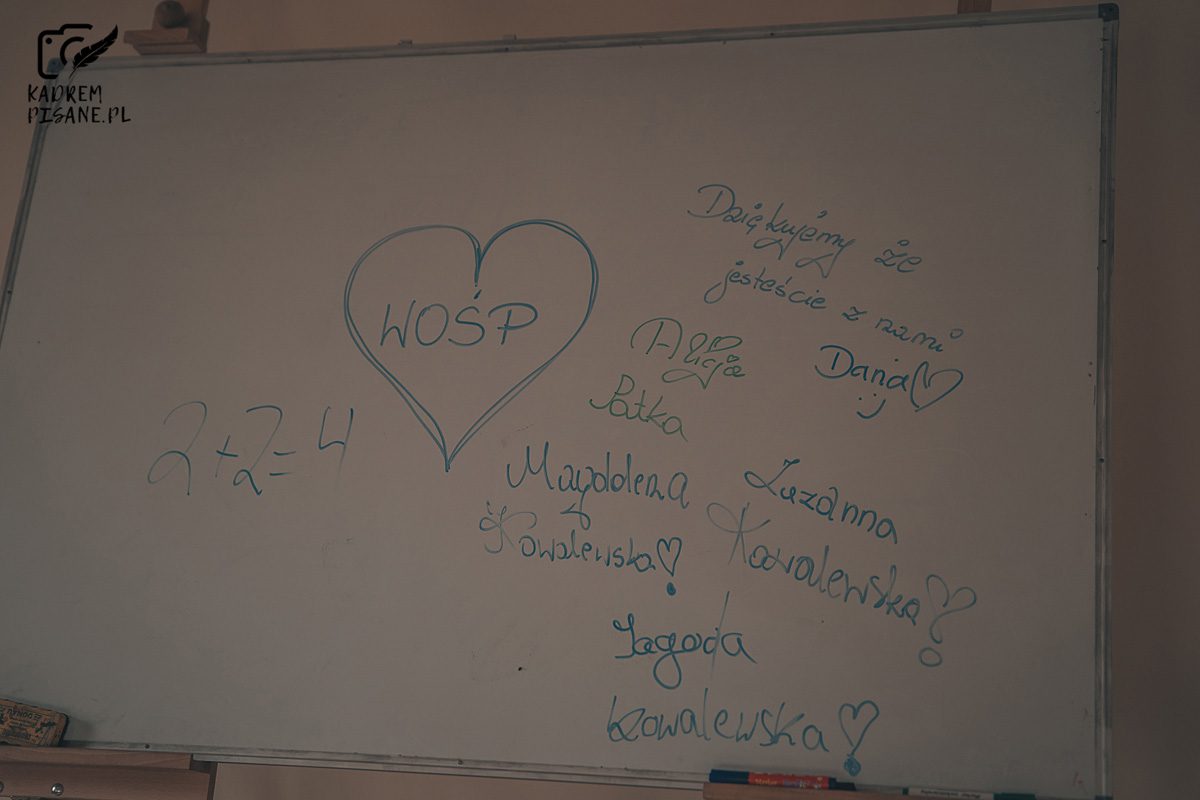 KADREM
PISANE.PL
WOŚP
2+2=4
Dziękujemy że
jesteście z nami
Alicja
Daria
Patka
Magddlena
Kowalewska
Zuzanna
Kowalewska
Jagoda
Kowalewska
DONAU